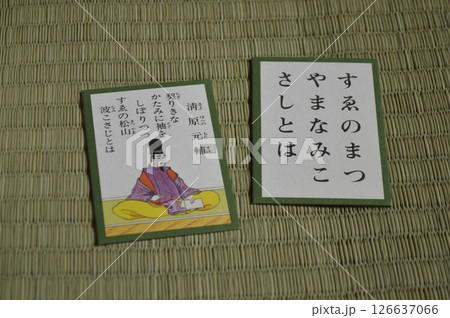 清原元輔
契りきな
かたみに袖を
しぼりつつ
すゑの松山
波こさじとは
すゑのまつ
やまなみこ
さしとは